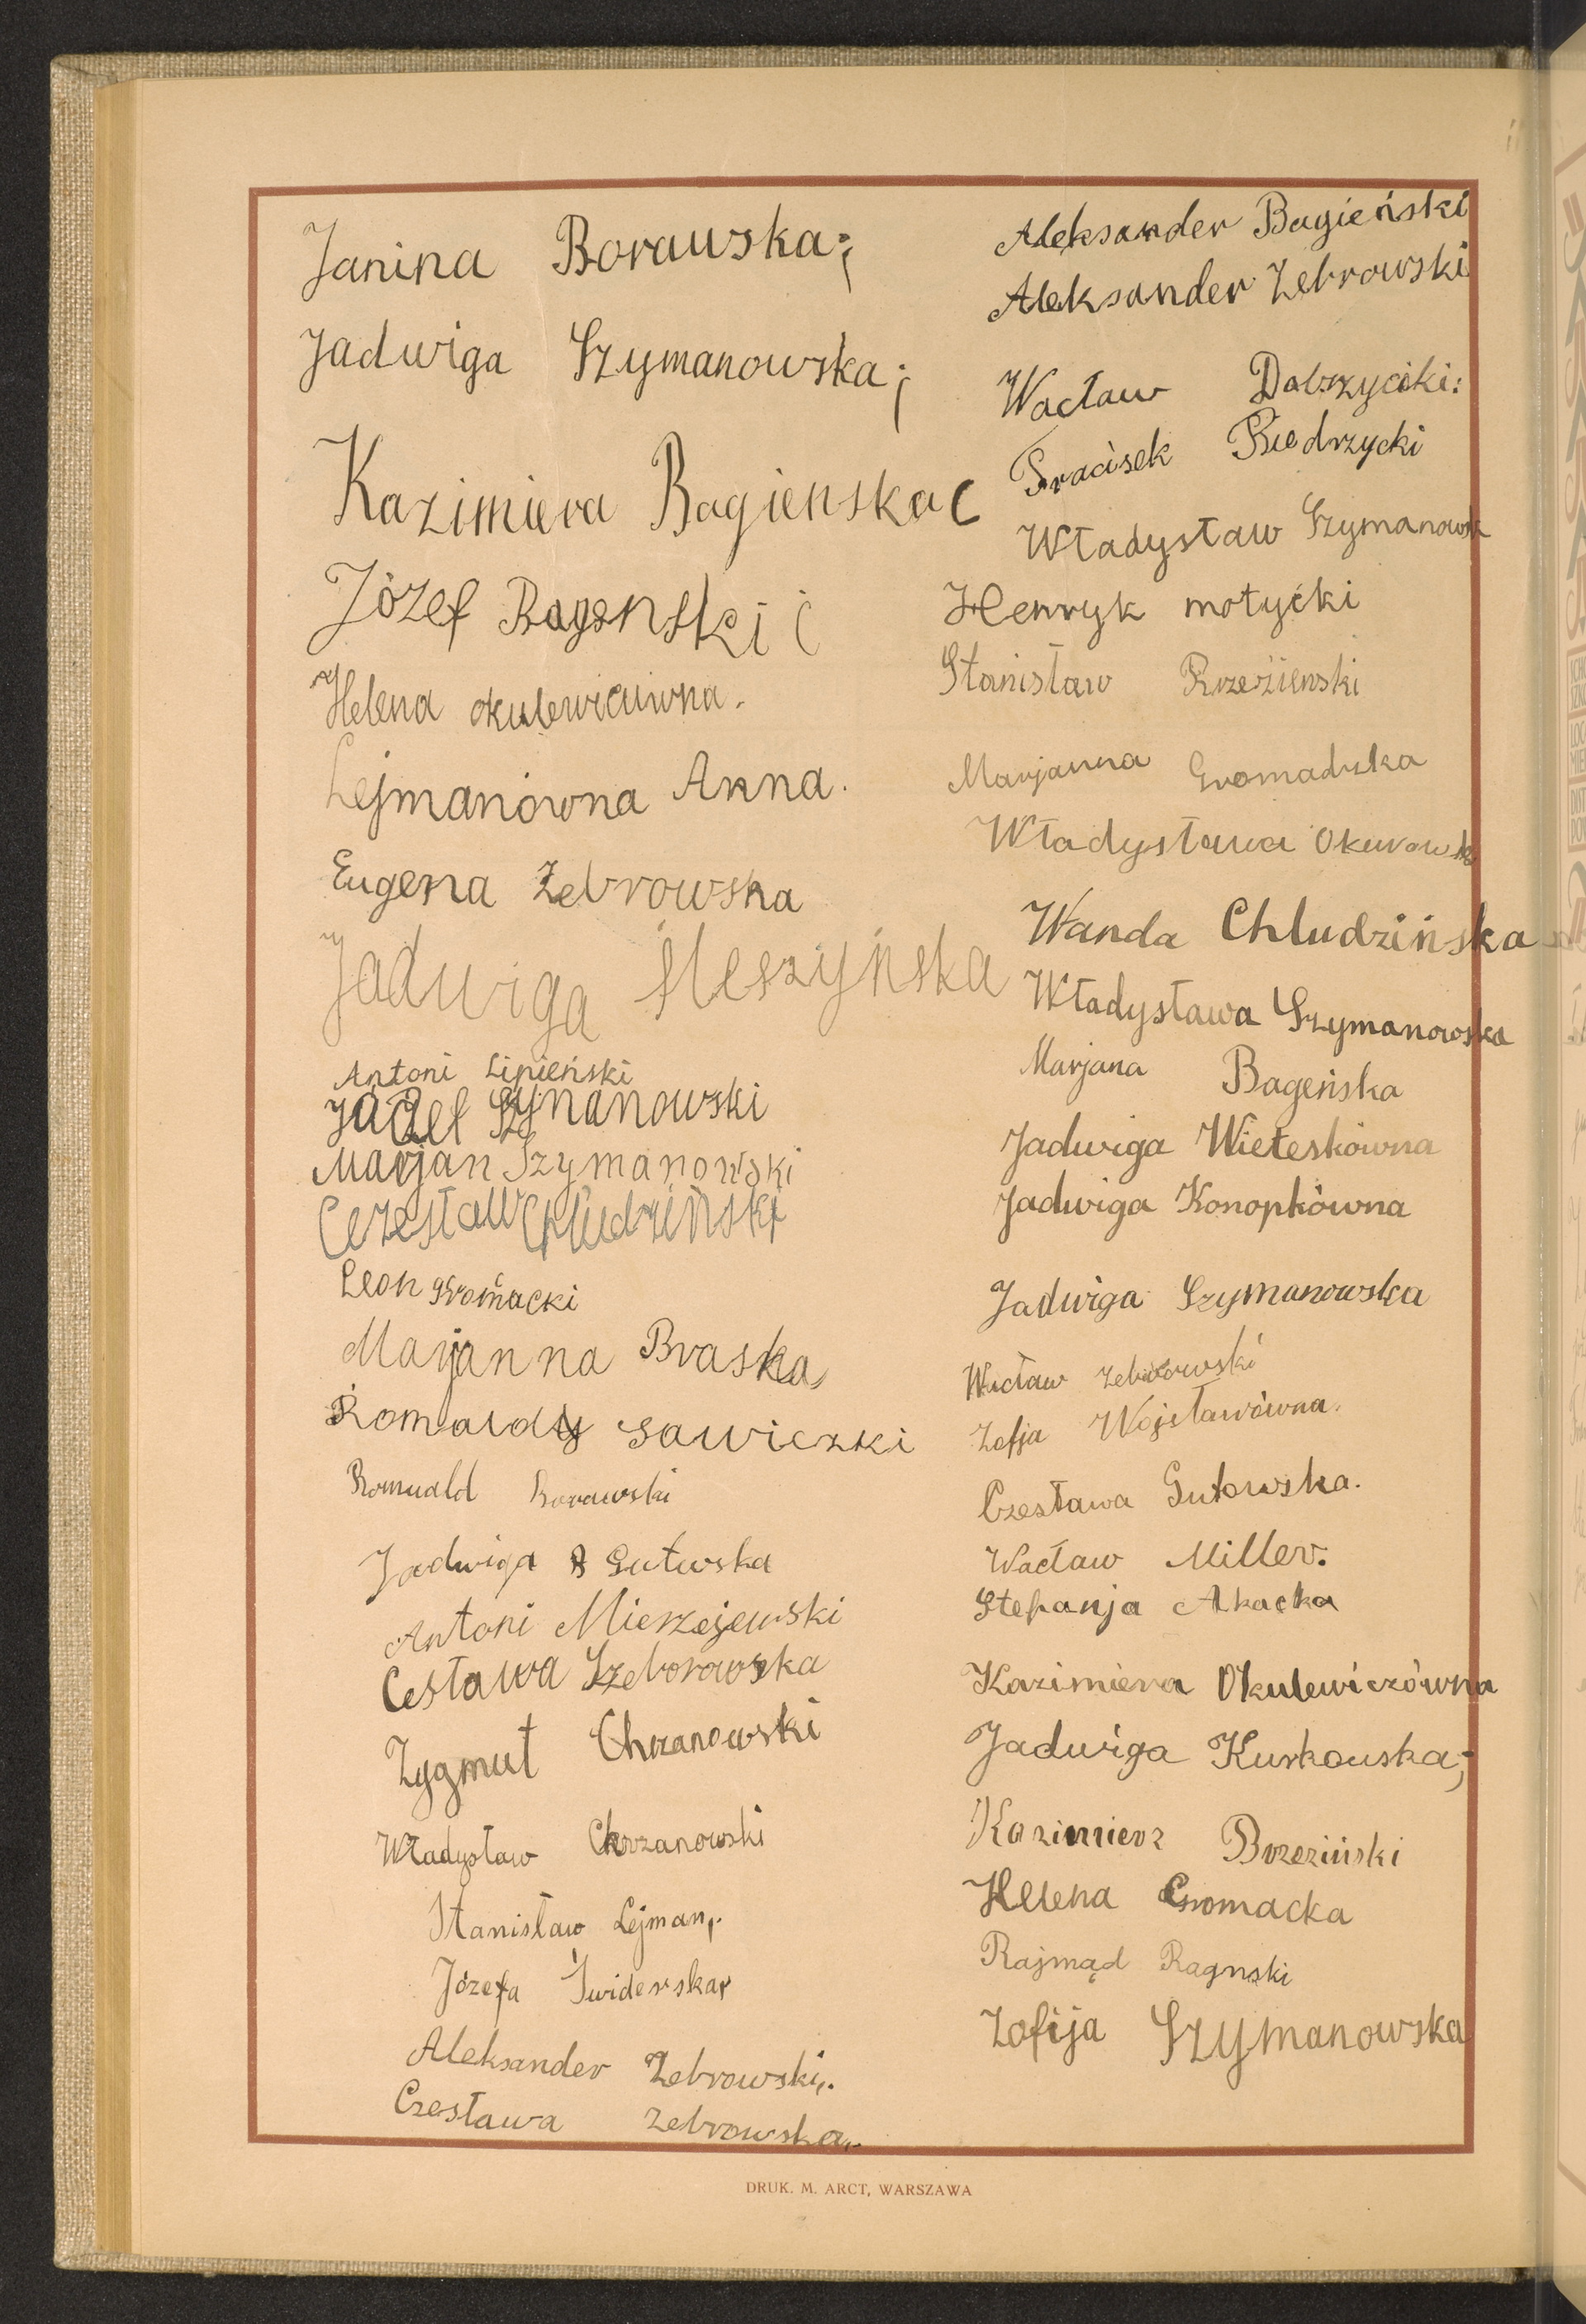 Janina Borawska;
Jadwiga Szymanowska;
Kazimiera Bagienska
Józef Bagenski
Helena Okulewiciuwna.
Lejmanówna Anna.
Eugena Żebrowska
Jadwiga
Antoni Lipieński
Szymanowski
Marjan Szymanowski
Czesław Chludziński
Leon Gromacki
Marjanna Braska
Romaldy Sawiczki
Romuald Borawski
Jadwiga Gutuwska
Antoni Mierzejewski
Cesława Szeborowska
Zygmut Chrzanowski
Władysław Chrzanowski
Stanisław Lejman,.
Józefa Świderska
Aleksander Żebrowski,.
Czesława Żebrowska,.
Aleksander Bagieński
Aleksander Żebrowski
Wacław Dobrzyciki:
Fracisek Biedrzycki
Władysław Szymanowsk
Henryk motyćki
Stanisław Rzezienski
Marjanna Gromadzka
Władysława Okurowsk
Wanda Chludzińska
Władysława Szymanowska
Marjana Bageńska
Jadwiga Wieteskówna
Jadwiga Konopkówna
Jadwiga Szymanowska
Wacław Żebrowski
Zofja Wojsławówna.
Czesława Gutowska.
Wacław Miller.
Stefanja Akacka
Kazimiera Okulewiczówna
Jadwiga Kurkowska;
Kazimierz Brzeziński
Helena Gromacka
Rajmąd Ragnski
Zofija Szymanowska
DRUK. M. ARCT, WARSZAWA